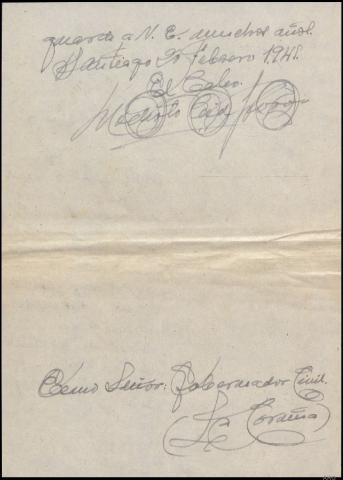 guarde a V. E. muchos años.
Santiago 27 Febrero 1.941.
El Cabo.
Excmo Señor: Gobernador Civil.
La Coruña